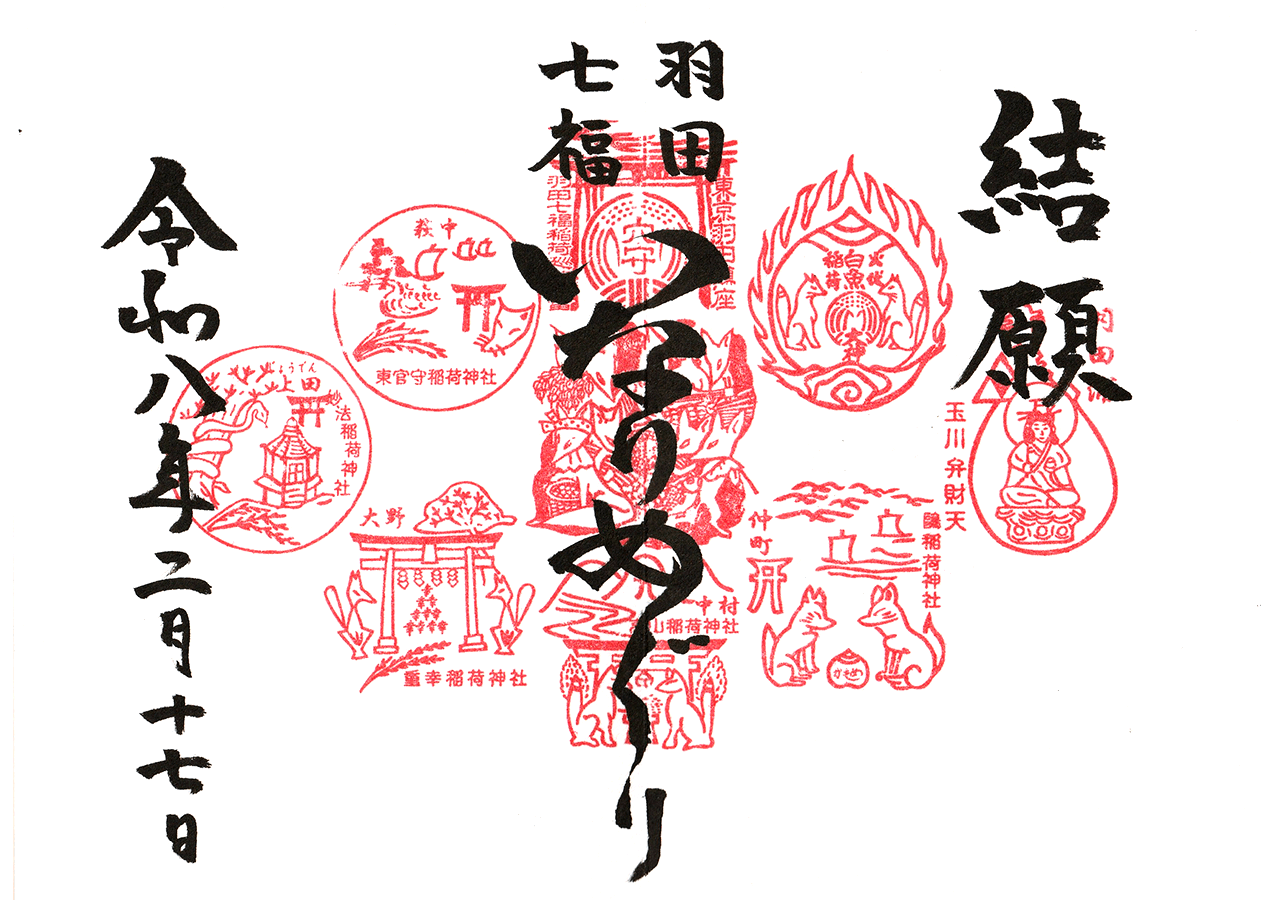 結願
羽田
七福
いなりめぐり
令和八年二月十七日
東京羽田
羽田七福稲荷
穴守
白魚
稲荷
玉川弁財天
萩中
東官守稲荷神社
じょうでん
上田
妙法稲荷神社
大野
重幸稲荷神社
仲町
鴎稲荷神社
かもめ
中村
山稲荷神社